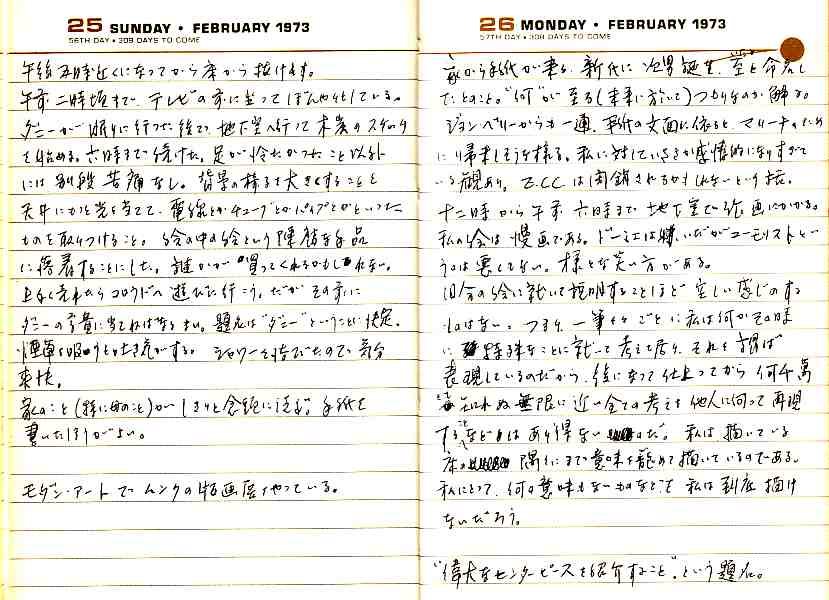 25 SUNDAY • FEBRUARY 1973
56TH DAY • 309 DAYS TO COME
午後五時近くになってから床から抜け出す。
午前二時頃まで、テレビの前に坐ってぼんやりとしている。
ダニーが眠りに行った後で、地下室へ行って木炭のスケッチ
を始める。六時まで続けた。足が冷たかったこと以外
には別段苦痛なし。背景の様子を大きくすることと
天井にかと光を当てて、電線とかチューブとかパイプとかといった
ものを取りつけること。絵の中の絵という陳腐な品
に落着することにした。誰かが買ってくれるかもしれない。
上手く売れたらコロラドへ遊びに行こう。だがその前に
ダニーの学費に当てねばなるまい。題名は“ダニー”ということに決定。
煙草を吸のと吐き気がする。シャワーを浴びたので気分
爽快。
家のこと(特に母のこと)がしきりと念頭に浮ぶ。手紙を
書いたほうがよい。
モダン・アートでムンクの版画展をやっている。
26 MONDAY • FEBRUARY 1973
57TH DAY • 308 DAYS TO COME
家から手紙が来る。新代に次男誕生、至と命名し
たとのこと。“何”が至る(未来に於いて)つもりなのか解る。
ジョン・ペリーからも一通、事件の文面に依ると、マリーナのため
に帰来しそうな様子。私に対していささか感情的になりすぎて
いる観あり。Z.C.C.は閉鎖されるかもしれないという話。
十二時から午前六時まで地下室で絵画にかかる。
私の絵は漫画である。ドーミエは嫌いだがユーモリストとい
うのは悪くない。様々な笑い方がある。
自分の絵に就いて説明することほど空しい感じのする
ものはない。つまり、一筆々々ごとに私は何かその時
に特殊なことに就いて考えて居り、それを謂わば
表現しているのだから、後になって仕上ってから何千萬
とも知れぬ無限に近い全ての考えを他人に向って再現
することなどはあり得ないのだ。私は描いている
床の隅々にまで意味を籠めて描いているのである。
私にとって、何の意味もないものなどを私は到底描け
ないだろう。
“偉大なセンターピースを紹介すること”という題名。